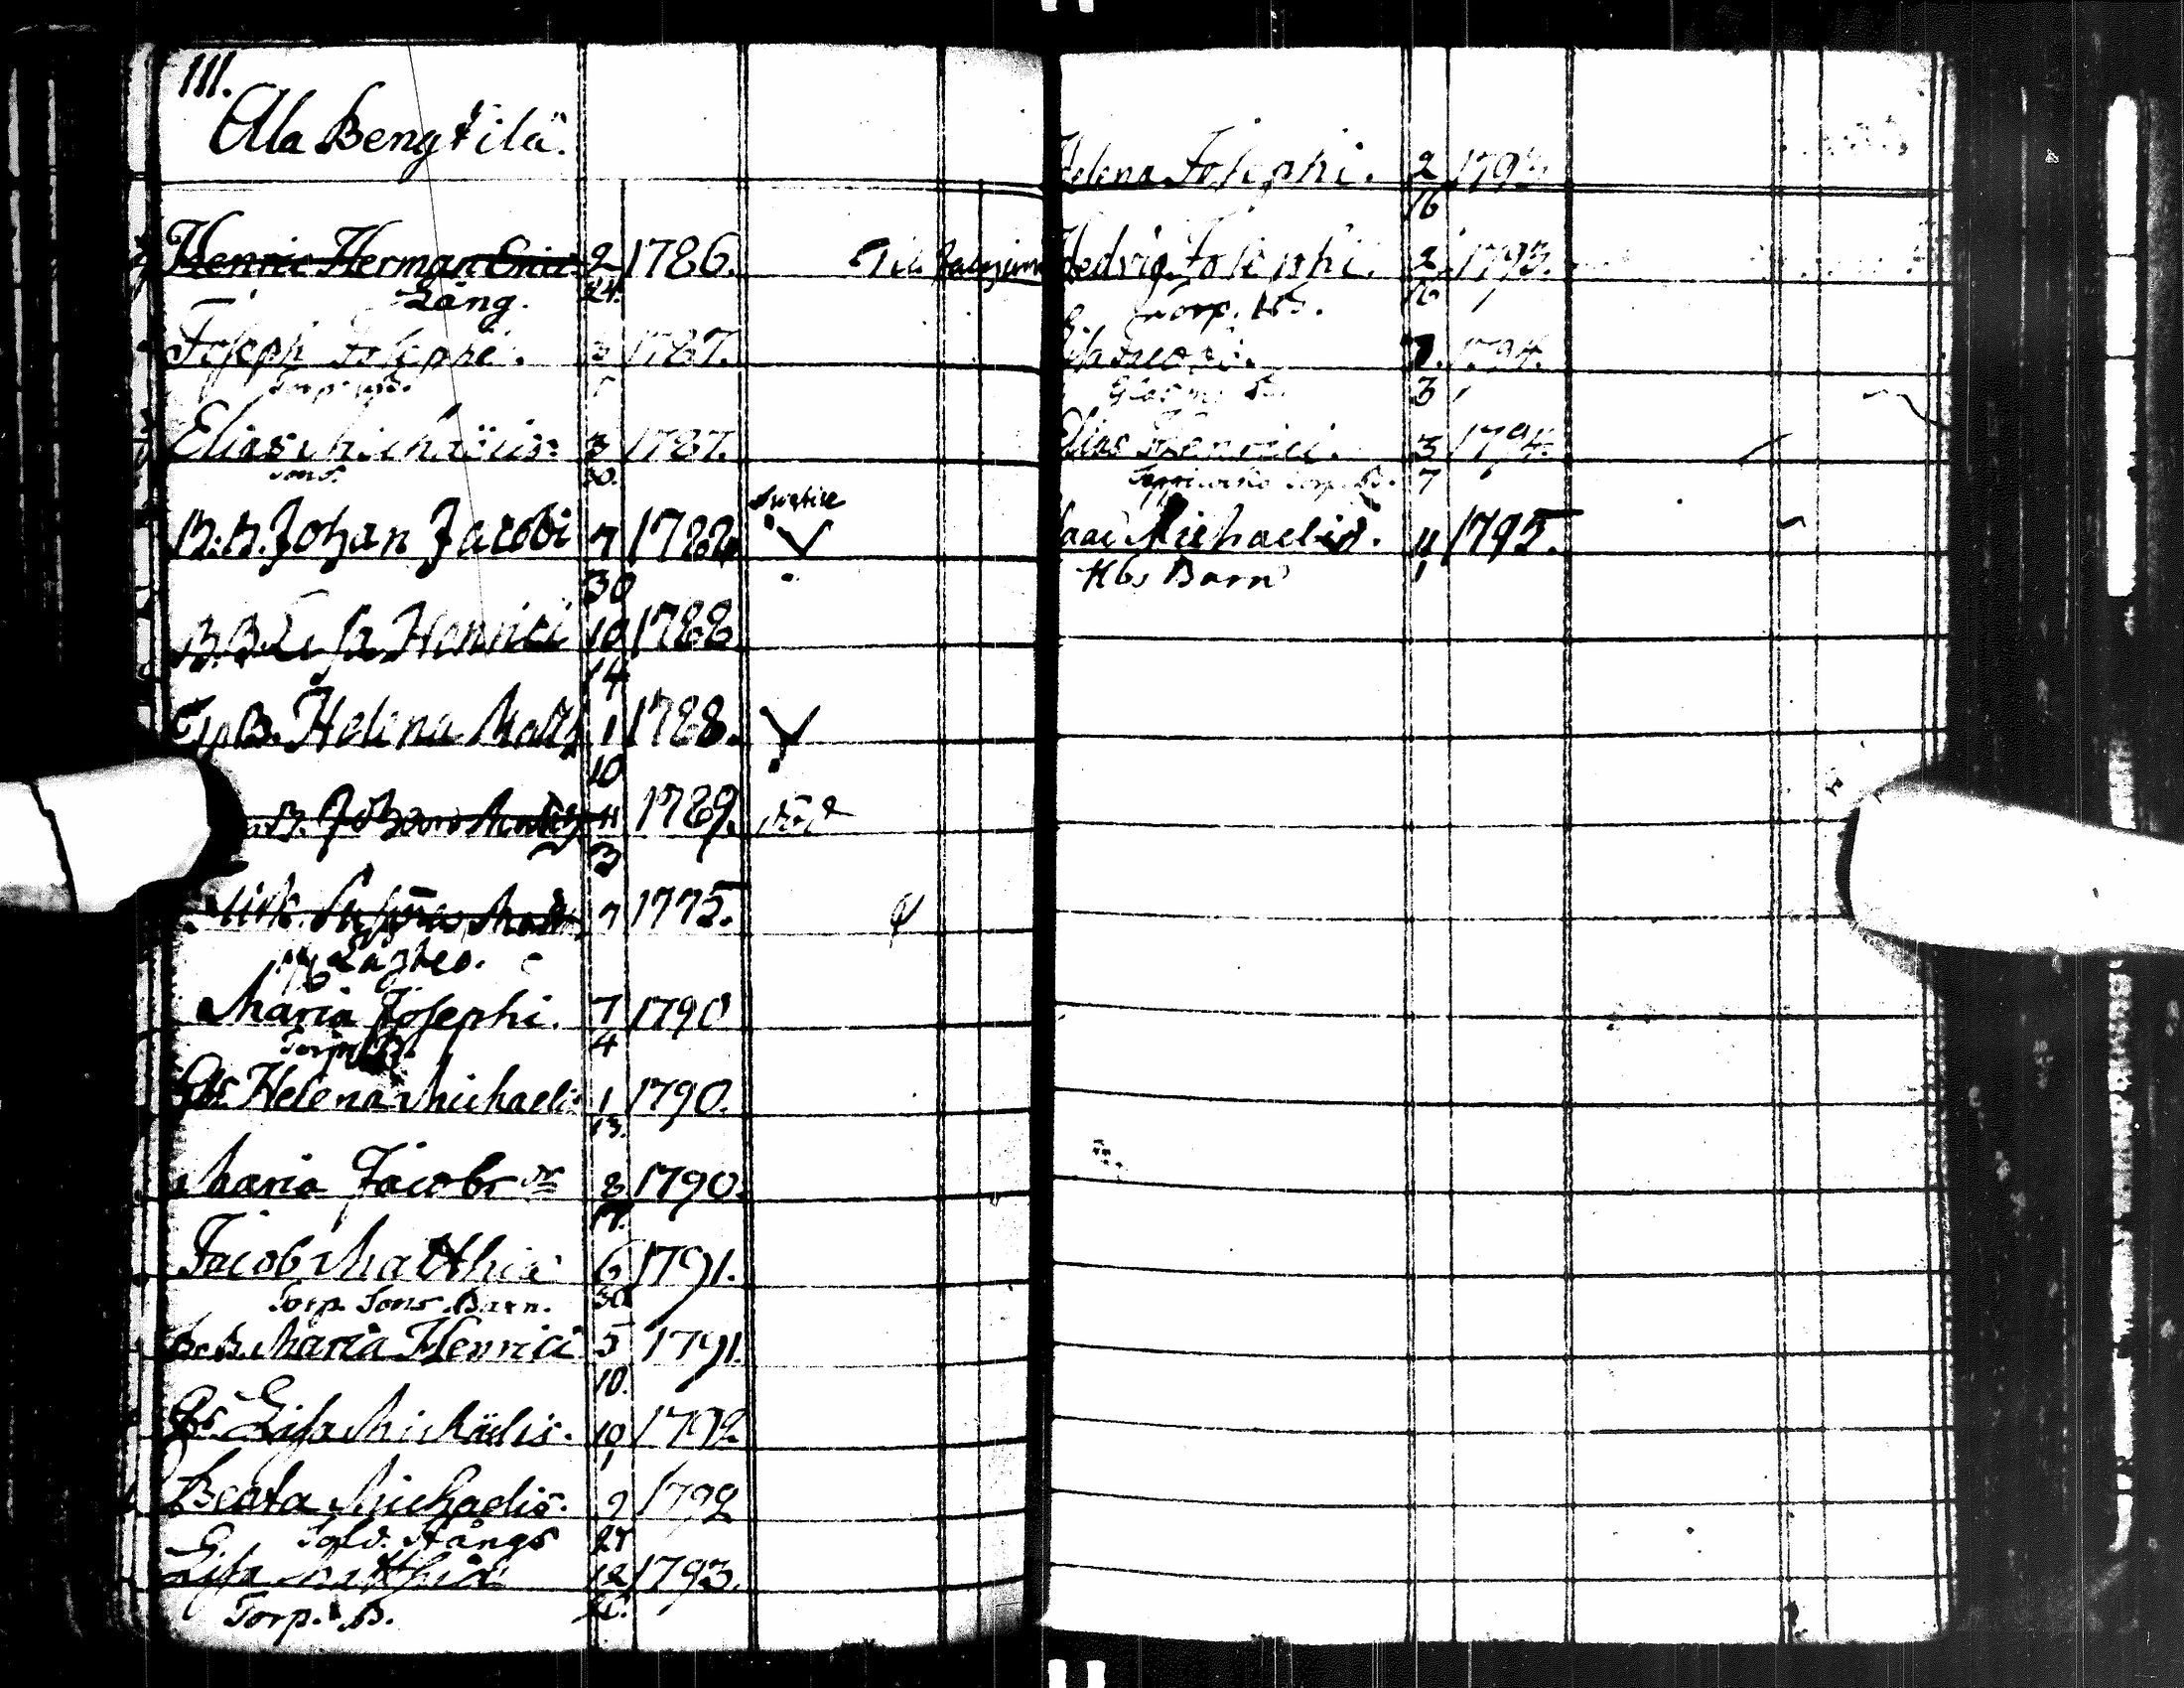 111.
Ala Bengtilä.
Henric Herman Eric 2 1786. Till
Lång. 24.
Joseph Josephi. 3 1787.
Torp. B.
Elias Michäelis. 3 1787.
Sons. 30.
B.B. Johan Jacobi 7 1788
30
B.B. Lisa Henrici 10 1788
14
Tp B. Helena Matts 1 1788.
10
B. Johan 11 1789.
3
Mich. 7 1775.
Maria Josephi. 7 1790
Torp B. 4
Gbs. Helena Michaelis 1 1790.
13.
Maria Jacobs 8 1790.
17.
Jacob Matthiæ 6 1791.
Torp. Sons Barn. 30
B.B. Maria Henrici 5 1791.
10.
Gbs. Lisa Michäelis. 10 1792
1
Beata Michaelis. 9 1792
Sold. Stångs
Lisa Matthiæ 12 1793.
Torp. B.
Helena Josephi. 2 1793.
16
Hedvig Josephi. 2 1793.
Torp. B. 16
1794.
3
Elias Henrici. 3 1794.
Torp. B. 7
Isaac Michaelis. 11 1795.
Hbs Barn 1